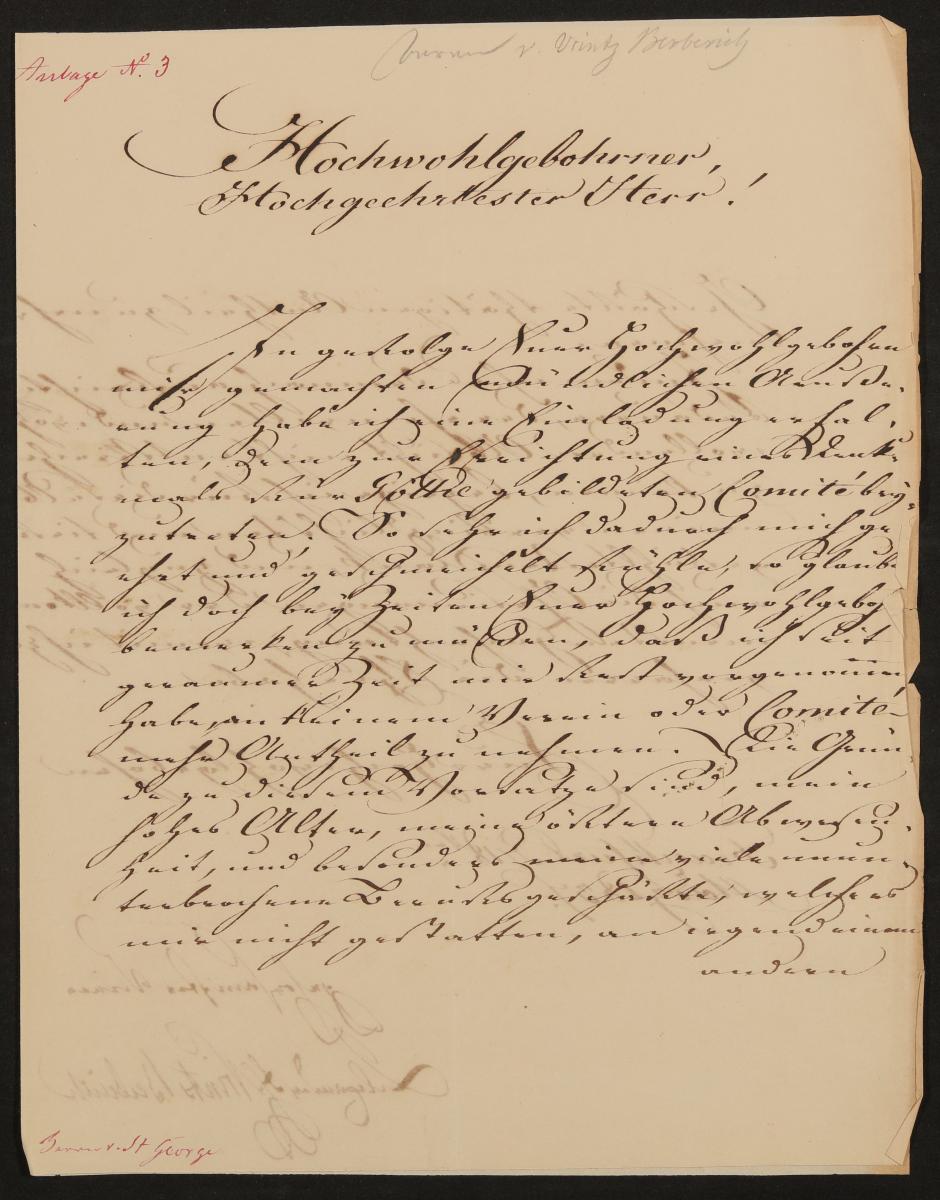 Anlage N.º 3
v. Vrintz Berberich
Hochwohlgebohrner,
Hochgeehrtester Herr!
In gefolge Euer Hochwohlgebohren
mir gemachten mündlichen Aeuße-
rung habe ich eine Einladung erhal-
ten, dem zur Errichtung eines Denk-
mals für Göthe gebildeten Comité bey-
zutreten. So sehr ich dadurch mich ge
ehrt und geschmeichelt fühle, so glaube
ich doch bey Zeiten Euer Hochwohlgeb
bemerken zu müßen, daß ich seit
geraumer Zeit mir fest vorgenommen
habe, an keinem Verein oder Comité
mehr Antheil zu nehmen. Die Grün
de zu diesem Vorsatze sind, mein
hohes Alter, meine öftere Abwesen-
heit, und besonders meine viele unun-
terbrochene Berufsgeschäfte, welche es
mir nicht gestatten, an irgend einem
andern
Herrn v. St George